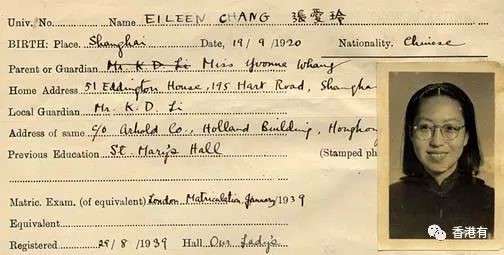 Univ. No. Name EILEEN CHANG 張愛玲
BIRTH: Place, Shanghai Date, 19/9/1920 Nationality. Chinese
Parent or Guardian Mr. K. D. Li Miss Yvonne Whang
Home Address 51 Eddington House, 195 Hart Road, Shangha
Local Guardian Mr. K. D. Li
Address of same c/o Arhold Co., Holland Building, Hongkong
Previous Education St. Mary's Hall (Stamped ph
Matric. Exam. (of equivalent) London Matriculation January 1939
Equivalent
Registered 29/8/1939 Hall Our Lady's
香港有